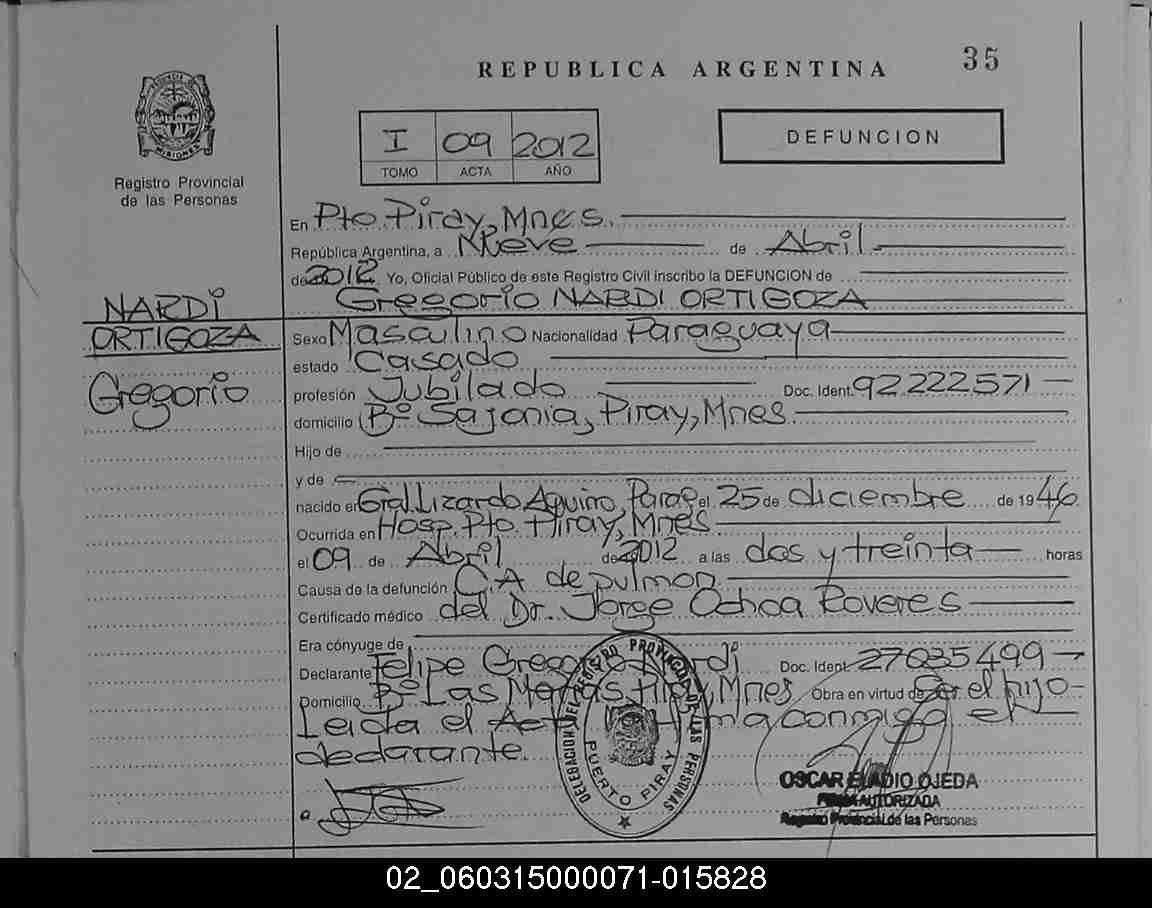 35
REPUBLICA ARGENTINA
PROVINCIA DE MISIONES
I 09 2012
TOMO ACTA AÑO
DEFUNCION
Registro Provincial
de las Personas
En Pto. Piray, Mnes.
República Argentina, a Nueve de Abril
de 2012 Yo, Oficial Público de este Registro Civil inscribo la DEFUNCION de
Gregorio NARDI ORTIGOZA
NARDI
ORTIGOZA
Gregorio
Sexo Masculino Nacionalidad Paraguaya
estado Casado
profesión Jubilado Doc. Ident. 92222571
domicilio Bº Sajonia, Piray, Mnes
Hijo de
y de
nacido en Gral. Lizardo Aquino, Parag el 25 de diciembre de 1946
Ocurrida en Hosp. Pto. Piray, Mnes
el 09 de Abril de 2012 a las dos y treinta horas
Causa de la defunción C.A de pulmon
Certificado médico del Dr. Jorge Ochoa Roveres
Era cónyuge de
Declarante Felipe Gregorio Nardi Doc. Ident. 27035499
Domicilio Bº Las Piray, Mnes Obra en virtud de Ser el hijo
Leida el Acta firma conmigo el
declarante.
DELEGACION DEL REGISTRO PROVINCIAL DE LAS PERSONAS
PUERTO PIRAY
OSCAR ELADIO OJEDA
FIRMA AUTORIZADA
Registro Provincial de las Personas
02_060315000071-015828